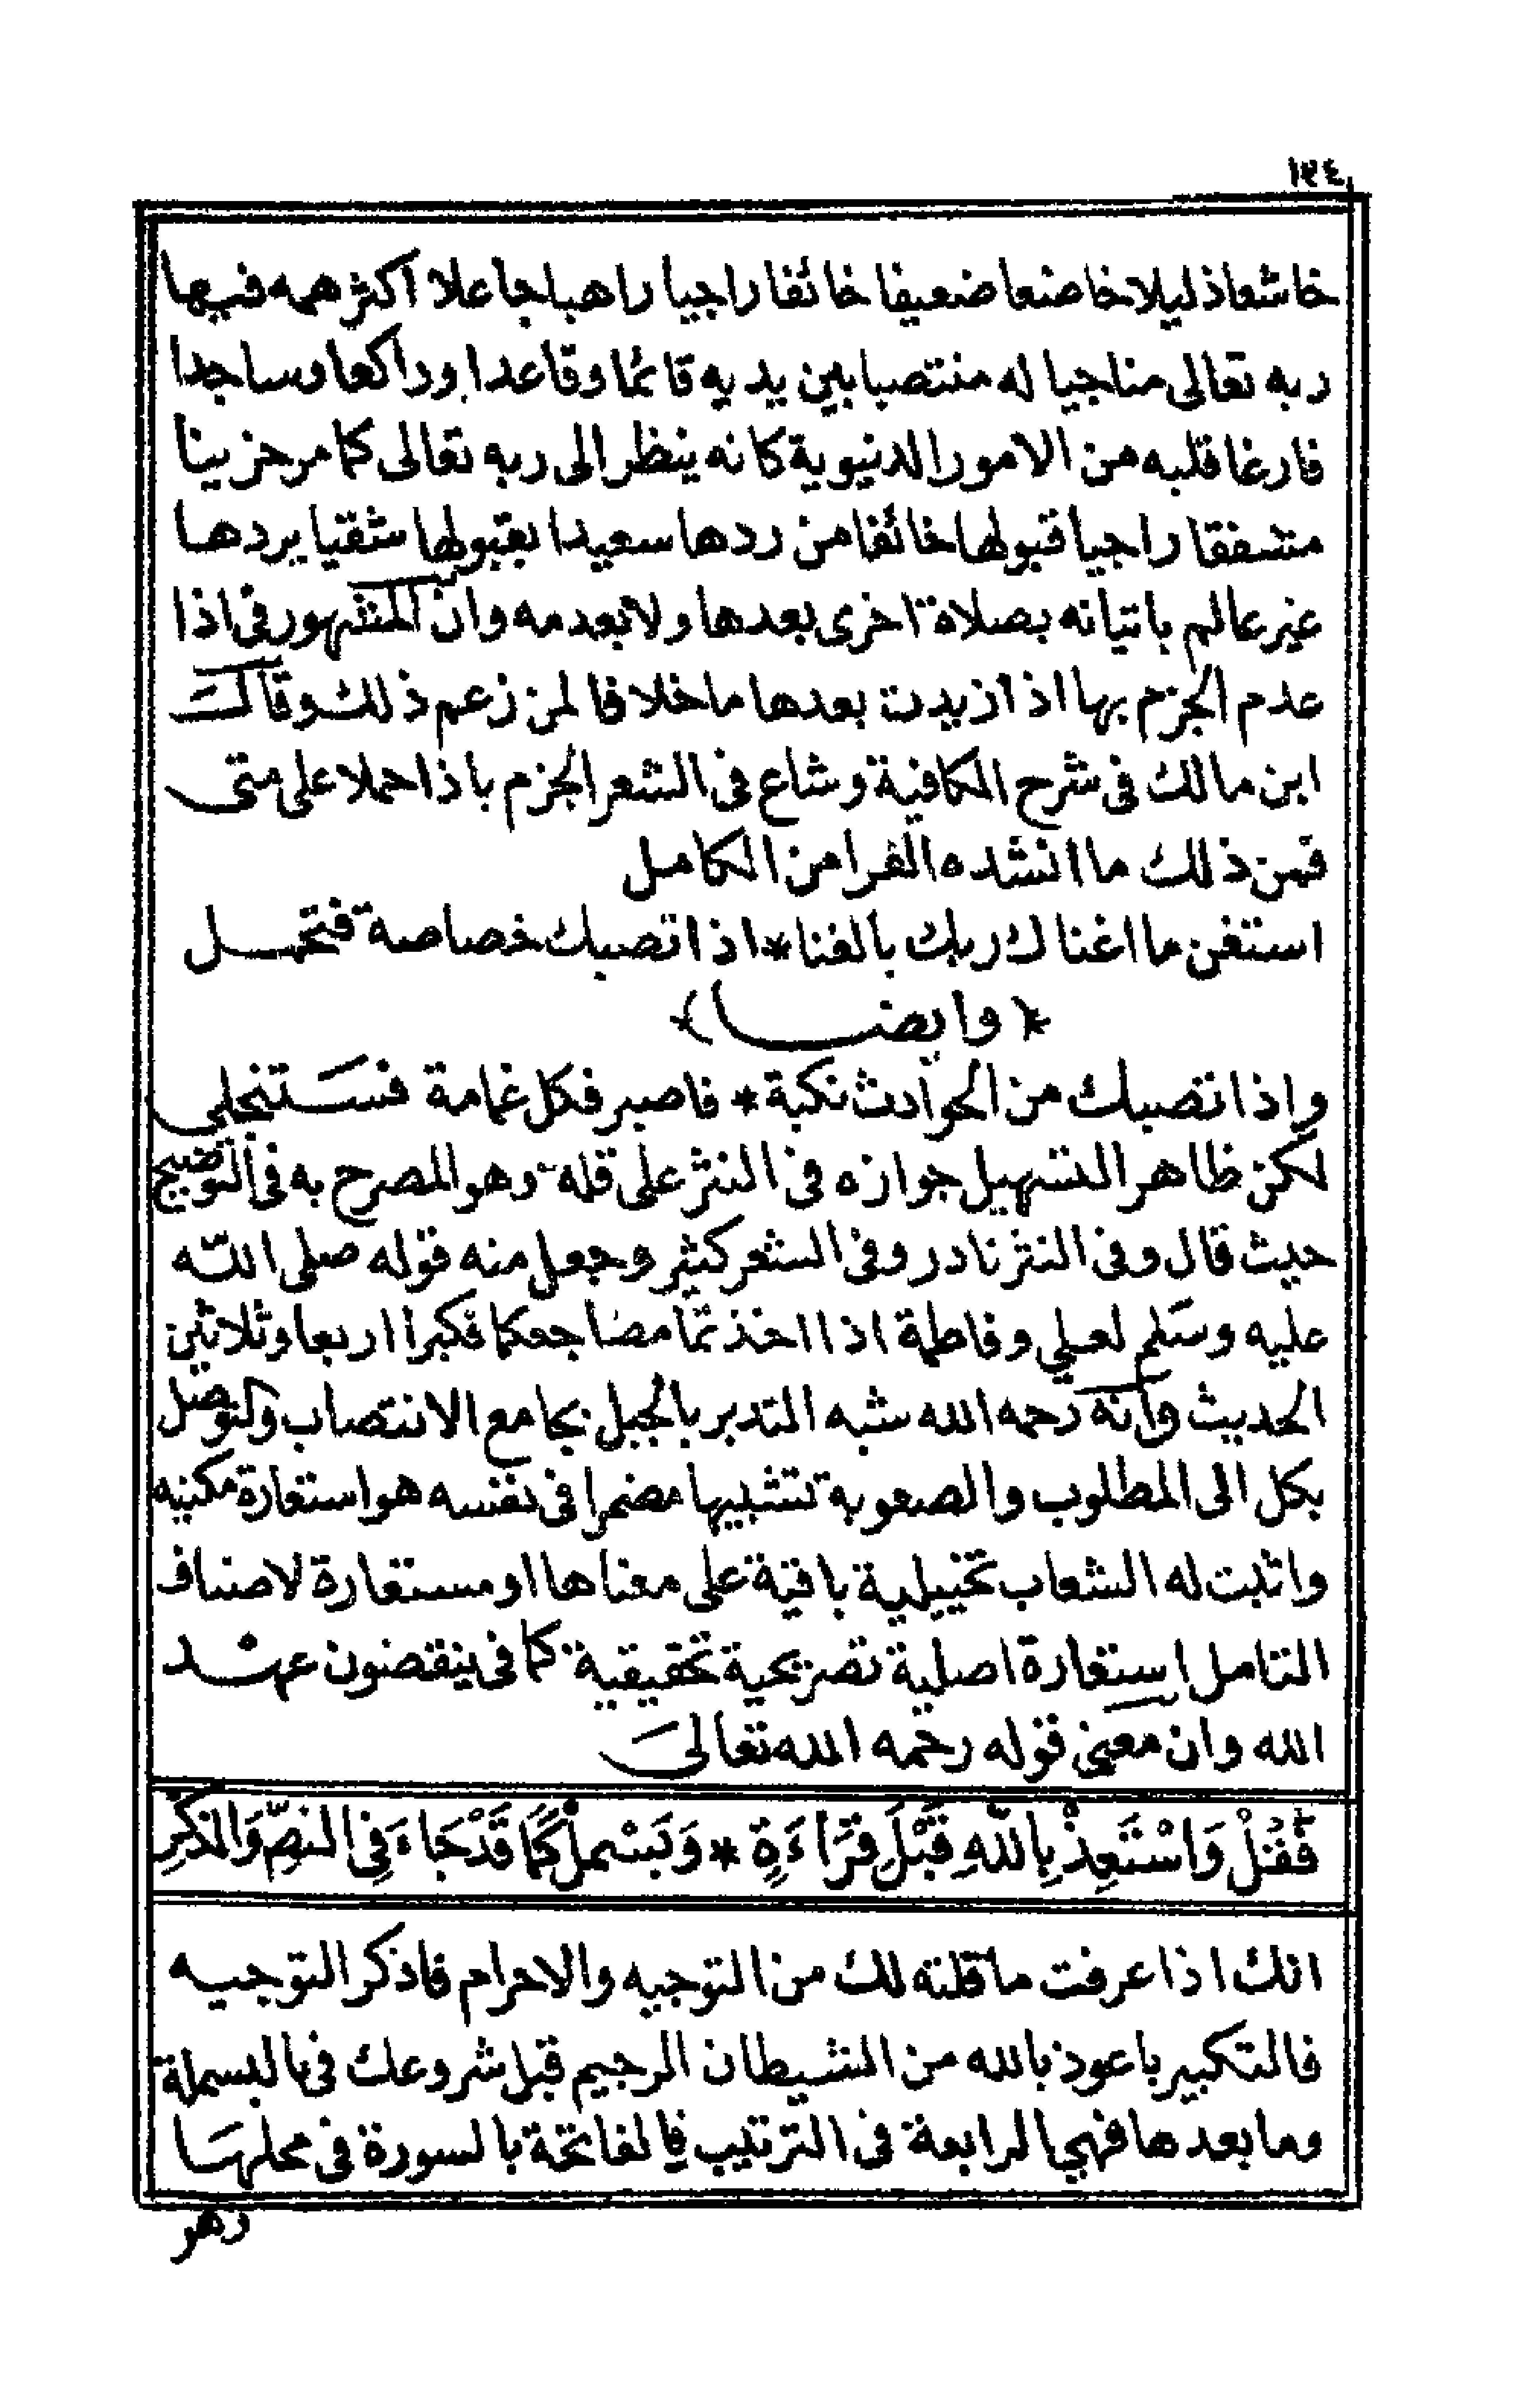 ١٢٤
خاشعا ذليلا خاضعا ضعيفا خائفا راجيا راهبا جاعلا اكثر همه فيها
ربه تعالى مناجيا له منتصبا بين يديه قائما وقاعدا وراكعا وساجدا
فارغا قلبه من الامور الدنيوية كانه ينظر الى ربه تعالى كما مر حزينا
مشفقا راجيا قبولها خائفا من ردها سعيدا بقبولها شقيا بردها
غير عالم باتيانه بصلاة اخرى بعدها ولا بعدمه وان المشهور فى اذا
عدم الجزم بها اذا زيدت بعدها ما خلافا لمن زعم ذلك وقال
ابن مالك فى شرح الكافية وشاع فى الشعر الجزم باذا حملا على متى
فمن ذلك ما انشده الفرا من الكامل
استغن ما اغناك ربك بالغنا * اذا تصبك خصاصة فتحمل
* (وايضا) *
واذا تصبك من الحوادث نكبة * فاصبر فكل غمامة فستنجلى
لكن ظاهر التسهيل جوازه فى النثر على قلة وهو المصرح به فى التوضيح
حيث قال وفى النثر نادر وفى الشعر كثير وجعل منه قوله صلى الله
عليه وسلم لعلي وفاطمة اذا اخذتما مضاجعكما فكبرا اربعا وثلاثين
الحديث وانه رحمه الله شبه التدبر بالجبل بجامع الانتصاب والتوصل
بكل الى المطلوب والصعوبة تشبيها مضمرا فى نفسه هو استعارة مكنيه
واثبت له الشعاب تخييلية باقية على معناها او مستعارة لاصناف
التامل استعارة اصلية تصريحية تحقيقية كما فى ينقضون عهد
الله وان معنى قوله رحمه الله تعالى
فَقُلْ وَاسْتَعِذْ بِاللّٰهِ قَبْلَ قِرَاءَةٍ * وَبَسْمِلْ كَمَا قَدْ جَاءَ فِى النصِّ وَالذكْرِ
انك اذا عرفت ما قلته لك من التوجيه والاحرام فاذكر التوجيه
فالتكبير باعوذ بالله من الشيطان الرجيم قبل شروعك فى البسملة
وما بعدها فهي الرابعة فى الترتيب فالفاتحة بالسورة فى محلها